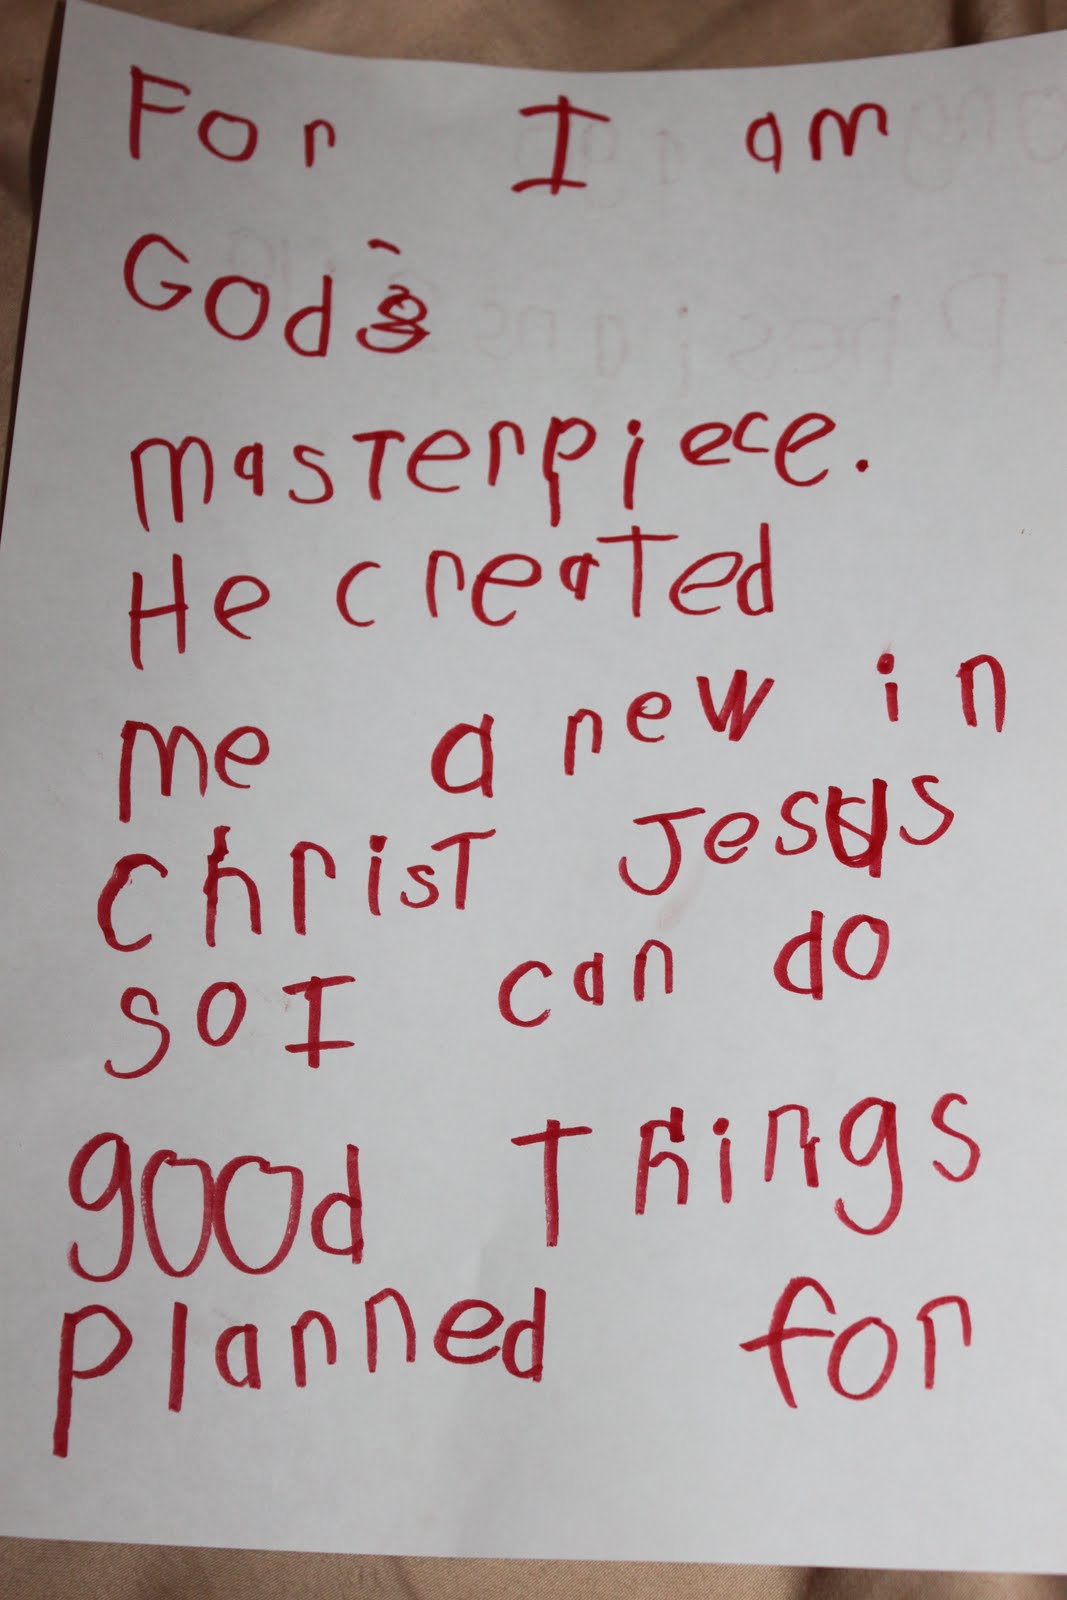 For I am
God's
masterpiece.
He created
me a new in
Christ Jesus
so I can do
good Things
planned for